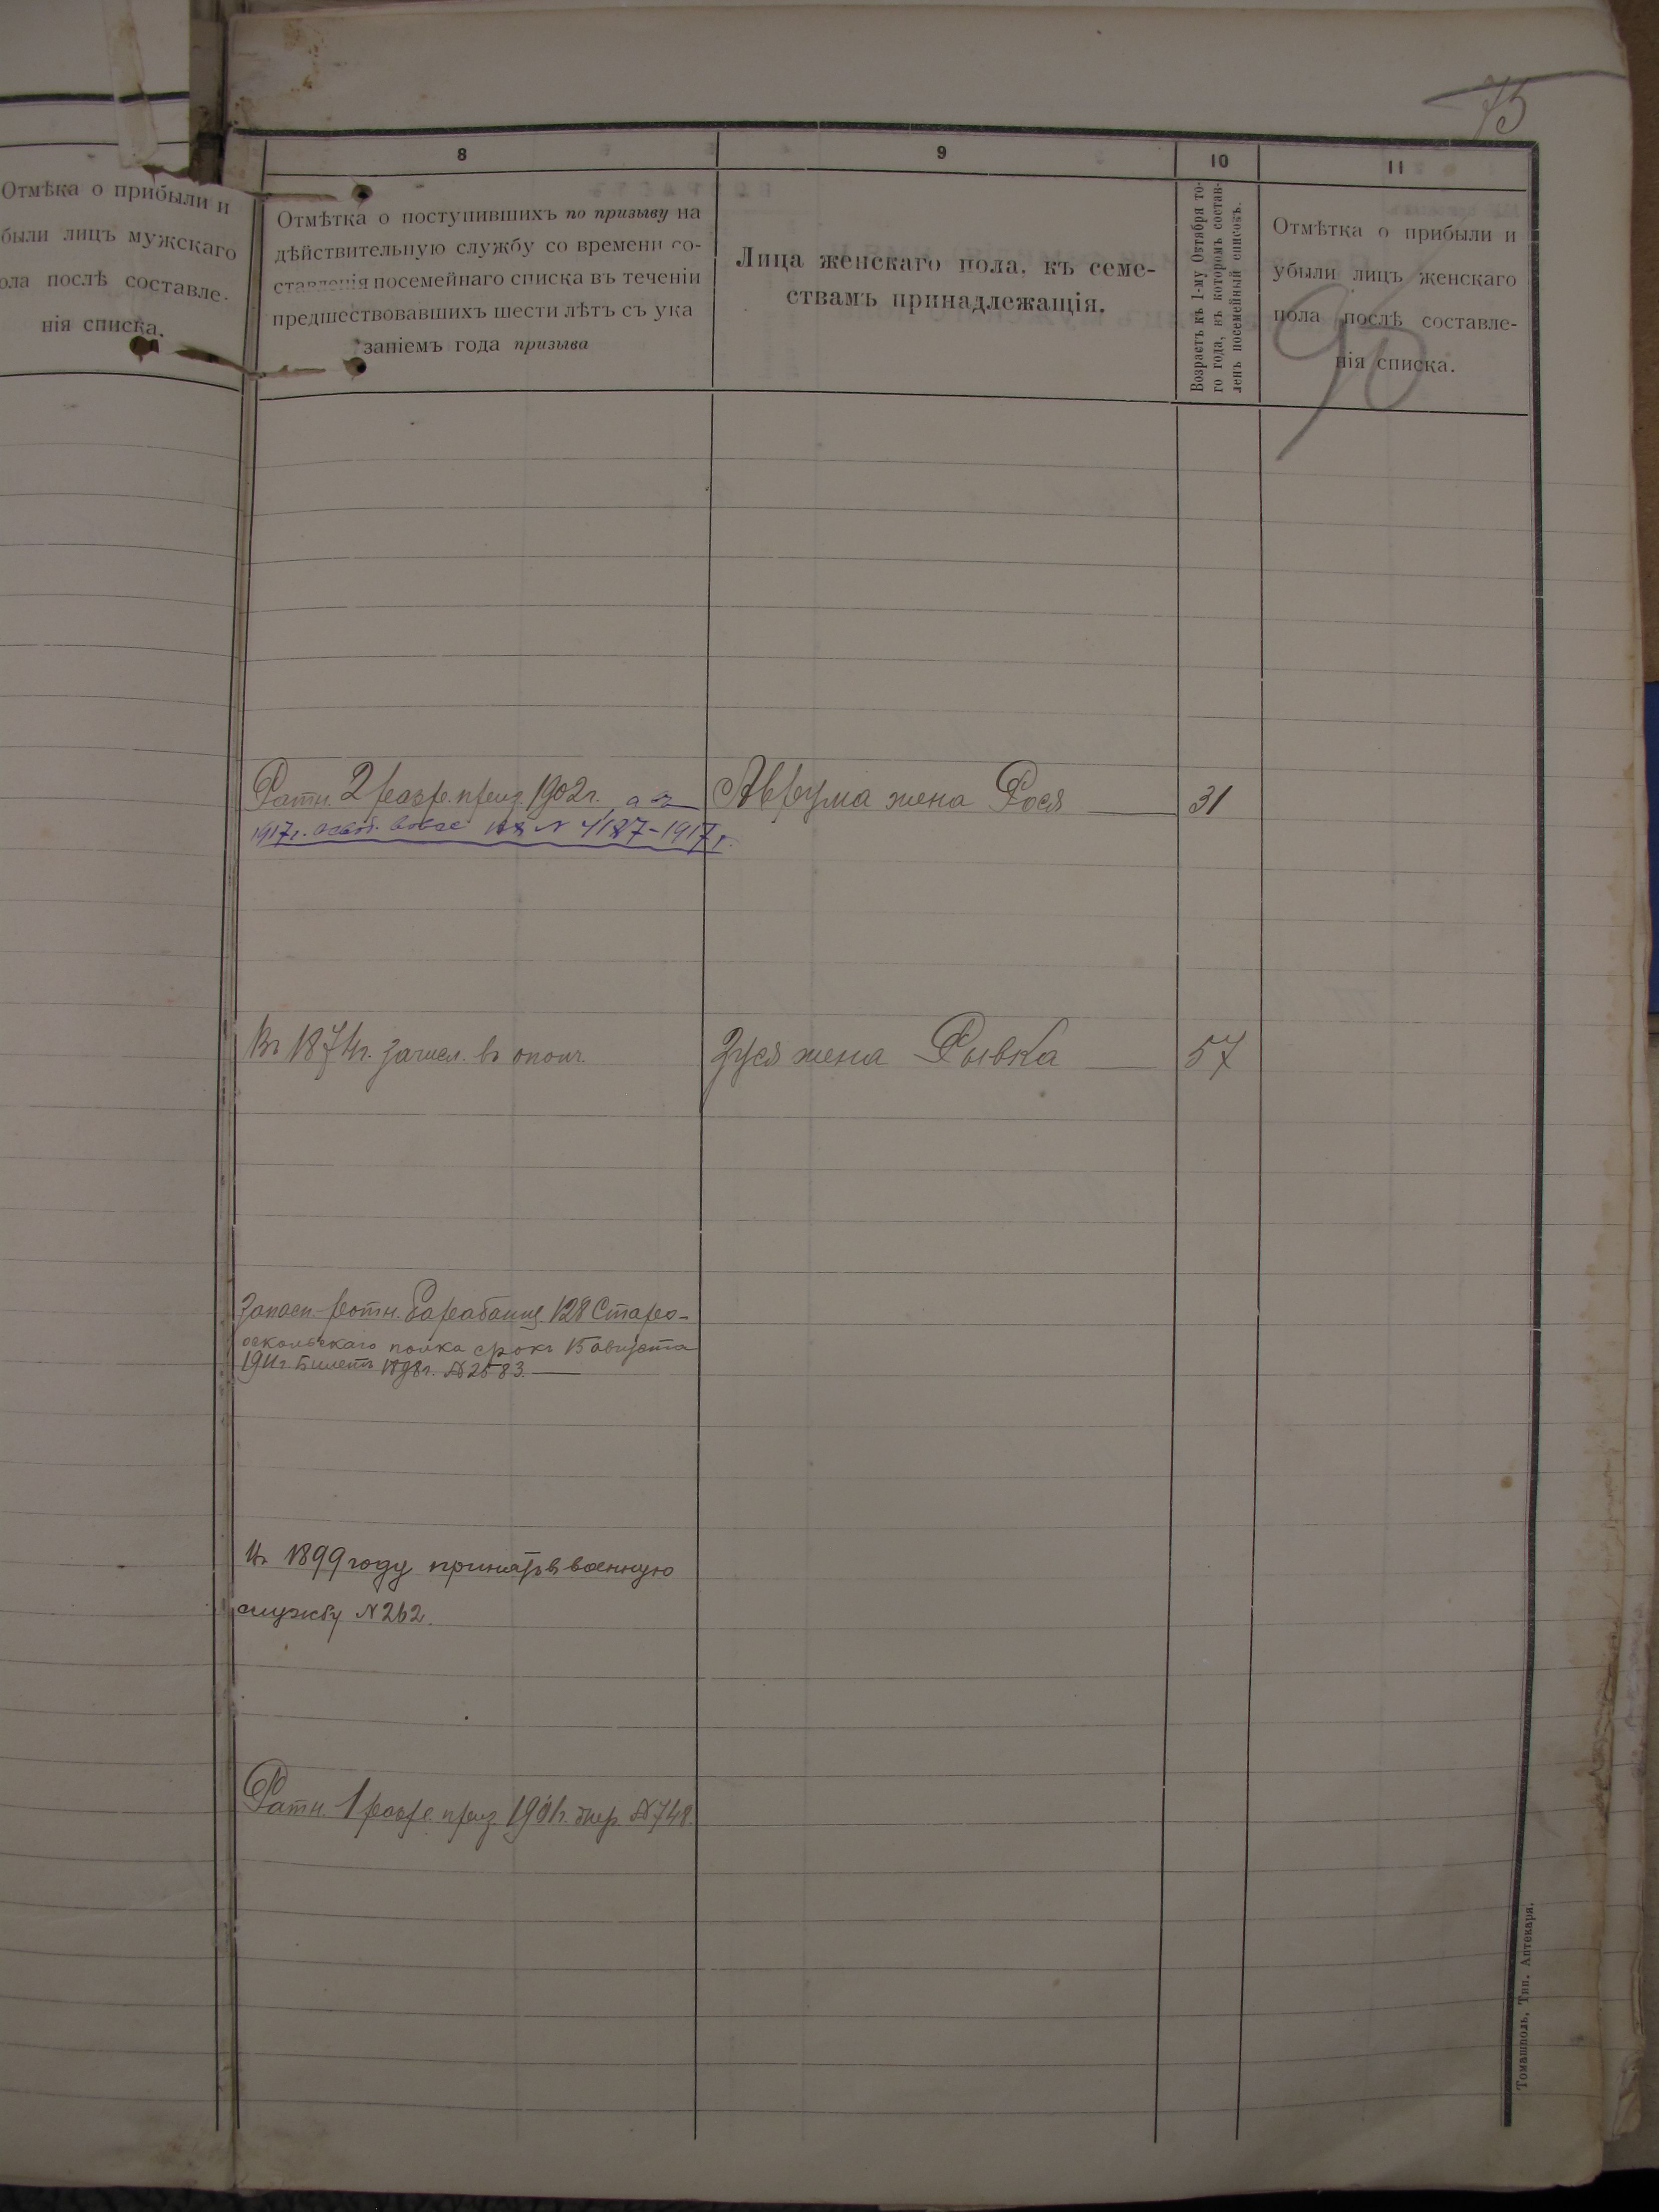 75
Отмѣка о прибыли и
были лицъ мужскаго
ола послѣ составле-
нія списка.
8
Отмѣтка о поступившихъ по призыву на
дѣйствительную службу со времени со-
ставленія посемейнаго списка въ теченіи
предшествовавшихъ шести лѣтъ съ ука
заніемъ года призыва
9
Лица женскаго пола, къ семе-
ствамъ принадлежащія.
10
Возрастъ къ 1-му Октября то-
го года, въ которомъ состав-
ленъ посемейный списокъ.
11
Отмѣтка о прибыли и
убыли лицъ женскаго
пола послѣ составле-
нія списка.
Ратн. 2 разр. приз. 1902 г. а въ
1917 г. освоб. вовсе N 4187-1917 г.
Аврума жена Рося
31
Въ 1874 г. зачисл. въ ополч.
Зуся жена Рывка
57
Запасн. ротн. барабанщ. 128 Старо-
оскольскаго полка срокъ 15 августа
1911 г. Билетъ 1898 г. № 2583.
Въ 1899 году принятъ въ военную
службу N 262.
Ратн. 1 разр. приз. 1901 г. жер. № 748.
Томашполь, Тип. Аптекаря.